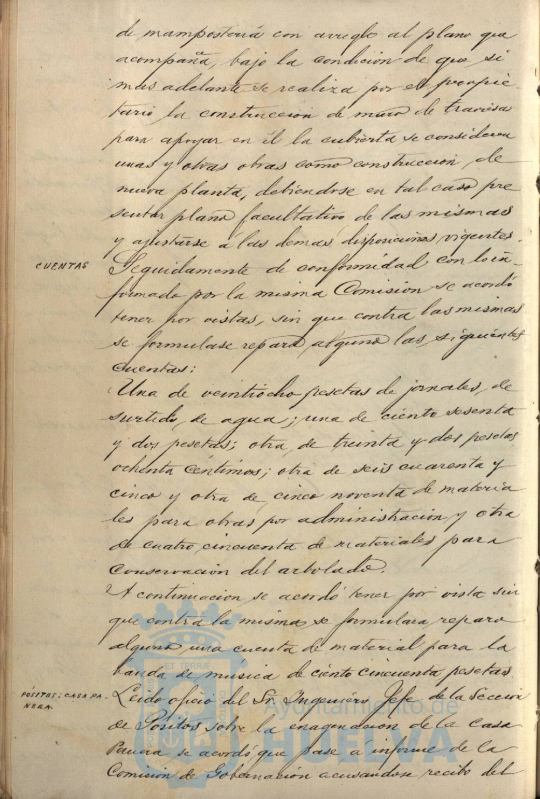 de mampostería con arreglo al plano que
acompaña, bajo la condición de que si
mas adelante se realiza por el propie
tario la construccion de muro de traviesa
para apoyar en él la cubierta se consideren
unas y otras obras como construccion de
nueva planta, debiendose en tal caso pre
sentar plano facultativo de las mismas
y ajustarse á las demas disposiciones vigentes.
CUENTAS
Seguidamente de conformidad con lo in-
formado por la misma Comision se acordó
tener por vistas, sin que contra las mismas
se formulase reparo alguno las siguientes
cuentas:
Una de veintiocho pesetas de jornales, de
surtido, de agua; una de ciento sesenta
y dos pesetas; otra, de treinta y dos pesetas
ochenta céntimos; otra de seis cuarenta y
cinco y otra de cinco noventa de materia
les para obras por administración y otra
de cuatro cincuenta de materiales para
conservación del arbolado.
A continuacion se acordó tener por vista sin
que contra la misma se formulara reparo
alguno una cuenta de material para la
banda de musica de ciento cincuenta pesetas
PÓSITOS: CASA PA-
NERA.
Leido oficio del Sr. Ingeniero Jefe de la Seccion
de Positos sobre la enagenacion de la Casa
Panera se acordó que pase á informe de la
Comisión de Gobernación acusandose recibo del
ET TERRÆ
Ayuntamiento de
HUELVA